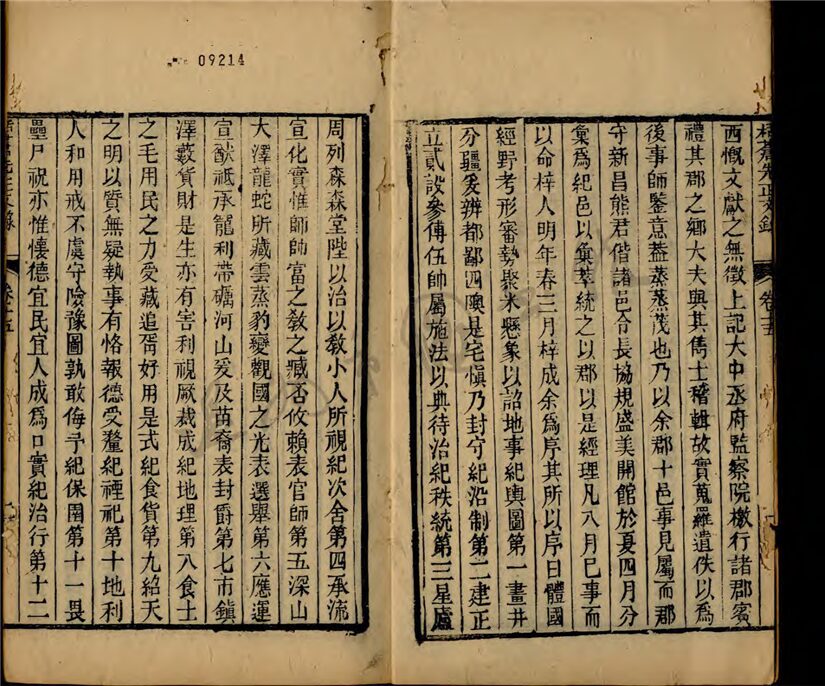 09214
栝蒼先正文錄
卷十五
西慨文獻之無徵上記大中丞府監察院檄行諸郡賓
禮其郡之鄉大夫與其雋士稽輯故實蒐羅遺佚以爲
後事師鑒意葢蒸蒸茂也乃以余郡十邑事見屬而郡
守新昌熊君偕諸邑令長協規盛美開館於夏四月分
彙爲紀邑以彙萃統之以郡以是經理凡八月巳事而
以命梓人明年春三月梓成余爲序其所以序曰體國
經野考形審勢聚米懸象以詔地事紀輿圖第一畫井
分疆爰辨都鄙四隩是宅愼乃封守紀沿制第二建正
立貳設參傅伍帥屬施法以典待治紀秩統第三星廬
周列森森堂陛以治以敎小人所視紀次舍第四承流
宣化實惟師師富之敎之臧否攸賴表官師第五深山
大澤龍蛇所藏雲蒸豹變觀國之光表選舉第六應運
宣猷祗承龍利帶礪河山爰及苗裔表封爵第七市鎭
澤藪貨財是生亦有害利視厥裁成紀地理第八食土
之毛用民之力愛藏追胥好用是式紀食貨第九紹天
之明以質無疑執事有恪報德受釐紀禋祀第十地利
人和用戒不虞守險豫圖孰敢侮予紀保圉第十一畏
壘尸祝亦惟懷德宜民宜人成爲口實紀治行第十二
卷十五